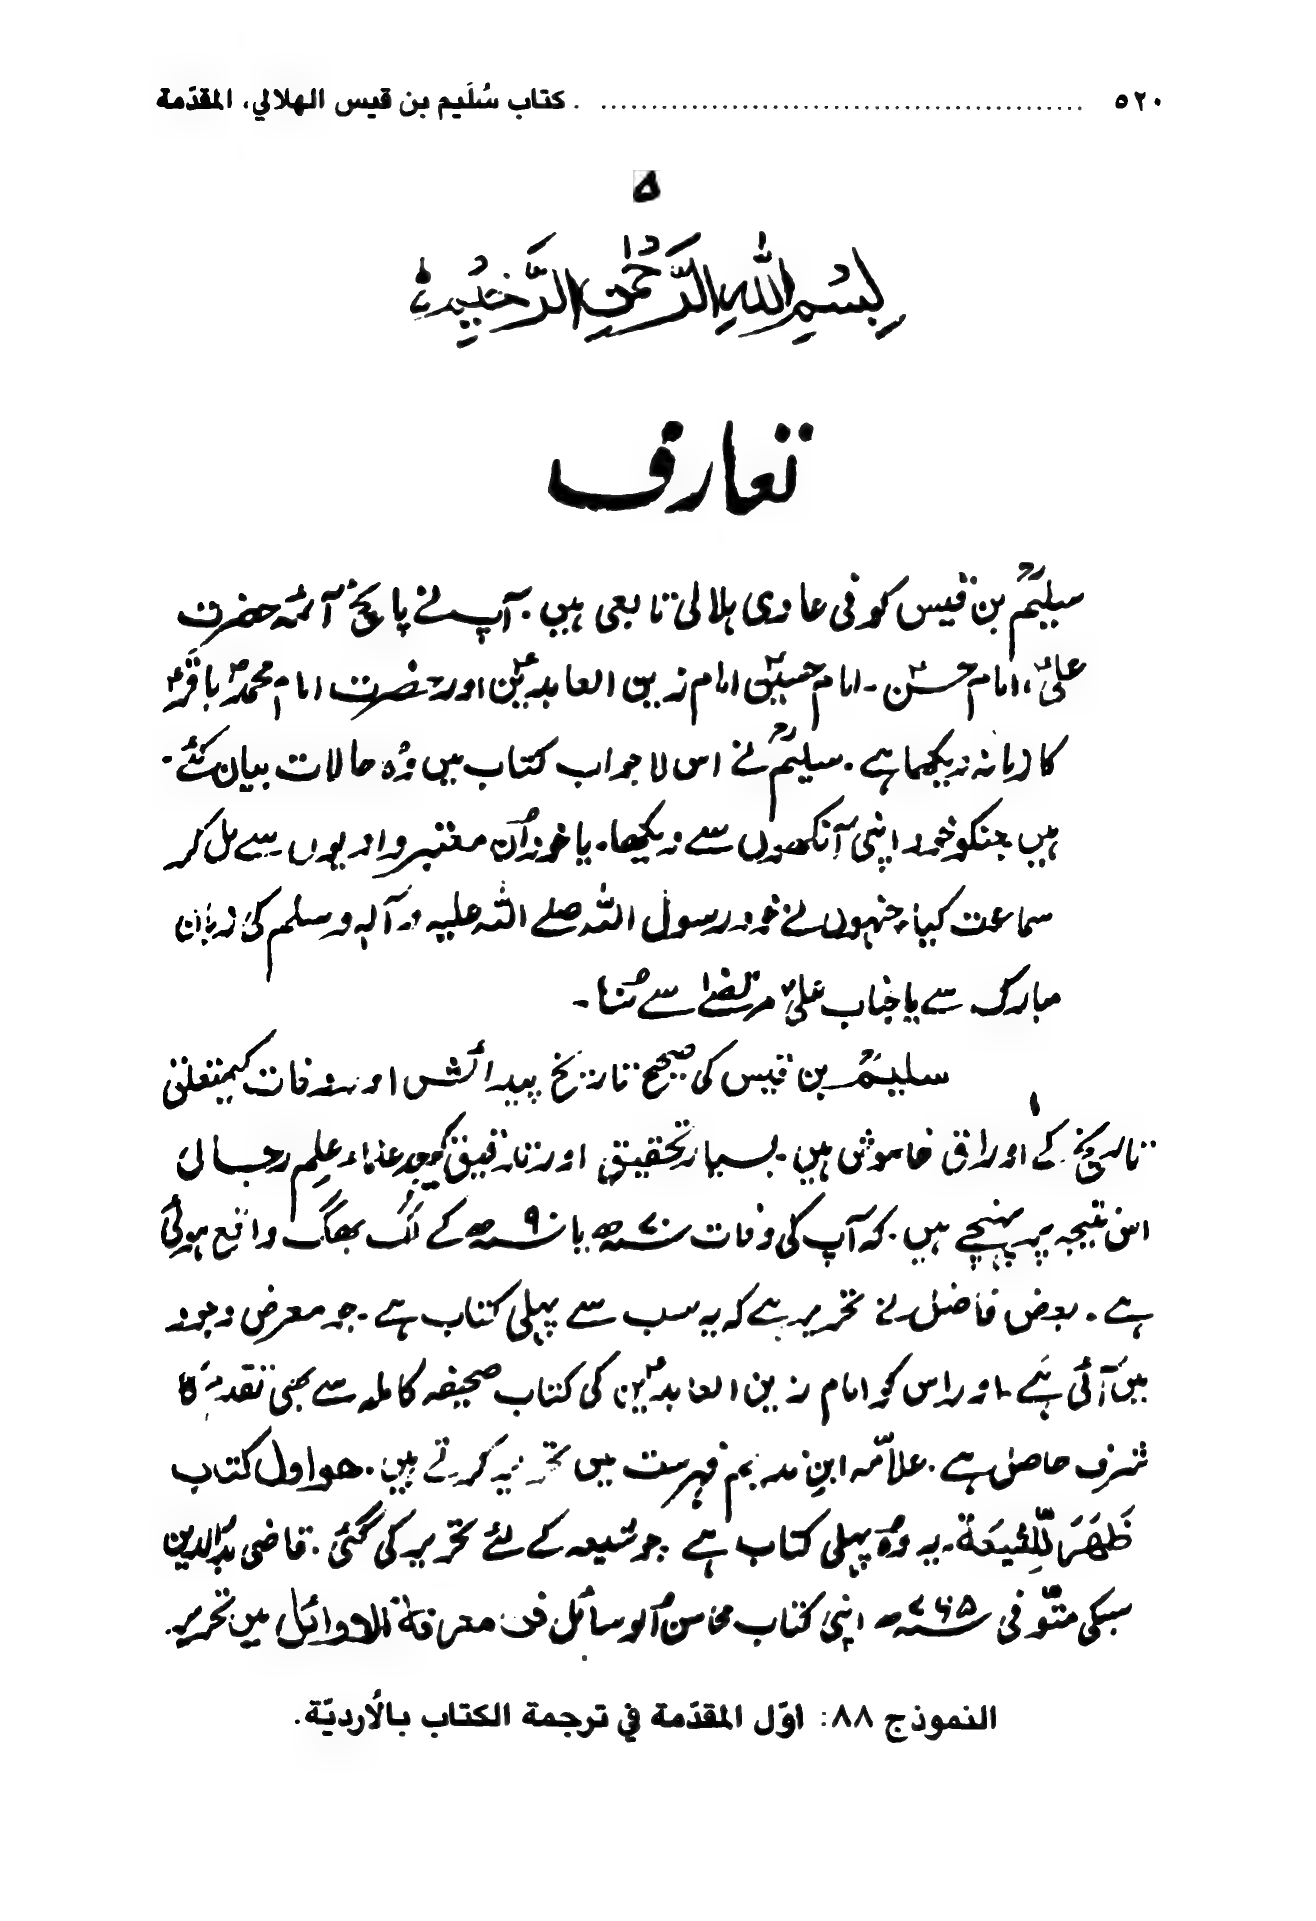 ٥٢٠ ................................................ . كتاب سُلَيم بن قيس الهلالي، المقدّمة
۵
بِسْمِ اللهِ الرَّحْمٰنِ الرَّحِيْمِ
تعارف
سیلیمؒ بن قیس کوفی عاری ہلالی تابعی ہیں۔ آپ نے پانچ آئمہ حضرت
علیؑ، امام حسنؑ۔ امام حسینؑ امام زین العابدینؑ اور حضرت امام محمد باقرؑ
کا زمانہ دیکھا ہے۔ سیلیمؒ نے اس لاجواب کتاب میں وُہ حالات بیان کئے
ہیں جنکو خود اپنی آنکھوں سے دیکھا۔ یا خود اُن معتبر راویوں سے مل کر
سماعت کیا، جنہوں نے خود رسول اللہ صلے اللہ علیہ و آلہ وسلم کی زبان
مبارک سے یا جناب علیؑ مرتضےٰ سے سُنا۔
سلیمؒ بن قیس کی صحیح تاریخ پیدائش اور وفات کیمتعلق
تاریخ کے اوراق خاموش ہیں۔ بسیار تحقیق اور تدقیق کیبعد علماء علم رجال
اس نتیجہ پر پہنچے ہیں۔ کہ آپ کی وفات ۷۰ھ یا ۹۰ھ کے لگ بھگ واقع ہوئی
ہے۔ بعض فاضل نے تحریر ہے کہ یہ سب سے پہلی کتاب ہے۔ جو معرض وجود
میں آئی ہے۔ اور اس کو امام زین العابدینؑ کی کتاب صحیفہ کاملہ سے بھی تقدم کا
شرف حاصل ہے۔ علامّہ ابنِ ندیم فہرست میں تحریر کرتے ہیں۔ ھواول کتاب
ظَھَرَ لِلشِّیعَۃ۔ یہ وُہ پہلی کتاب ہے جو شیعہ کے لئے تحریر کی گئی۔ قاضی بدرالدین
سبکی متوّفی ۷۶۵ھ اپنی کتاب محاسن الوسائل فی معرفۃ الاوائل میں تحریر
النموذج ٨٨: اوّل المقدّمة في ترجمة الكتاب بالأرديّة.